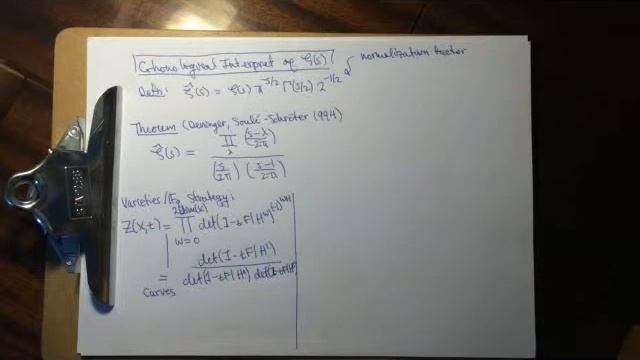 Cohomological Interpret of ζ(s) normalization factor
Defn: ζ̂(s) = ζ(s) π^{-s/2} Γ(s/2) 2^{-1/2}
Theorem (Deninger, Soulé-Schröter 1994)
ζ̂(s) = ∏_λ ((s-λ)/2π) / (s/2π) ((s-1)/2π)
Varieties/F_q Strategy:
Z(X,t) = ∏_{w=0}^{2dim(X)} det(I-tF|H^w)^{(-1)^{w+1}}
= det(I-tF|H¹) / det(I-tF|H⁰)
Curves